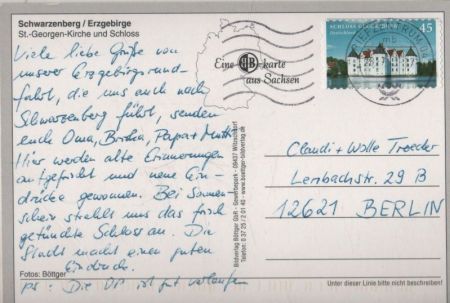 Schwarzenberg / Erzgebirge
St.-Georgen-Kirche und Schloss
Viele liebe Grüße von
unserer Erzgebirgsrund-
fahrt, die uns auch nach
Schwarzenberg führt, senden
euch Oma, Papa + Mutti.
Hier werden alte Erinnerungen
aufgefrischt und neue Ein-
drücke gewonnen. Bei Sonnen
schein strahlt uns das frisch
getünchte Schloss an. Die
Stadt macht einen guten
Eindruck.
PS: Die OP ist gut verlaufen
Fotos: Böttger
Eine BB-karte
aus Sachsen
SCHLOSS GLÜCKSBURG
Deutschland
45
Bildverlag Böttger GbR · Gewerbepark · 09437 Witzschdorf
Telefon: 0 37 25 / 2 01 40 · www.boettger-bildverlag.de
Claudi + Wolle Troeder
Lenbachstr. 29 B
12621 BERLIN
Unter dieser Linie bitte nicht beschreiben!